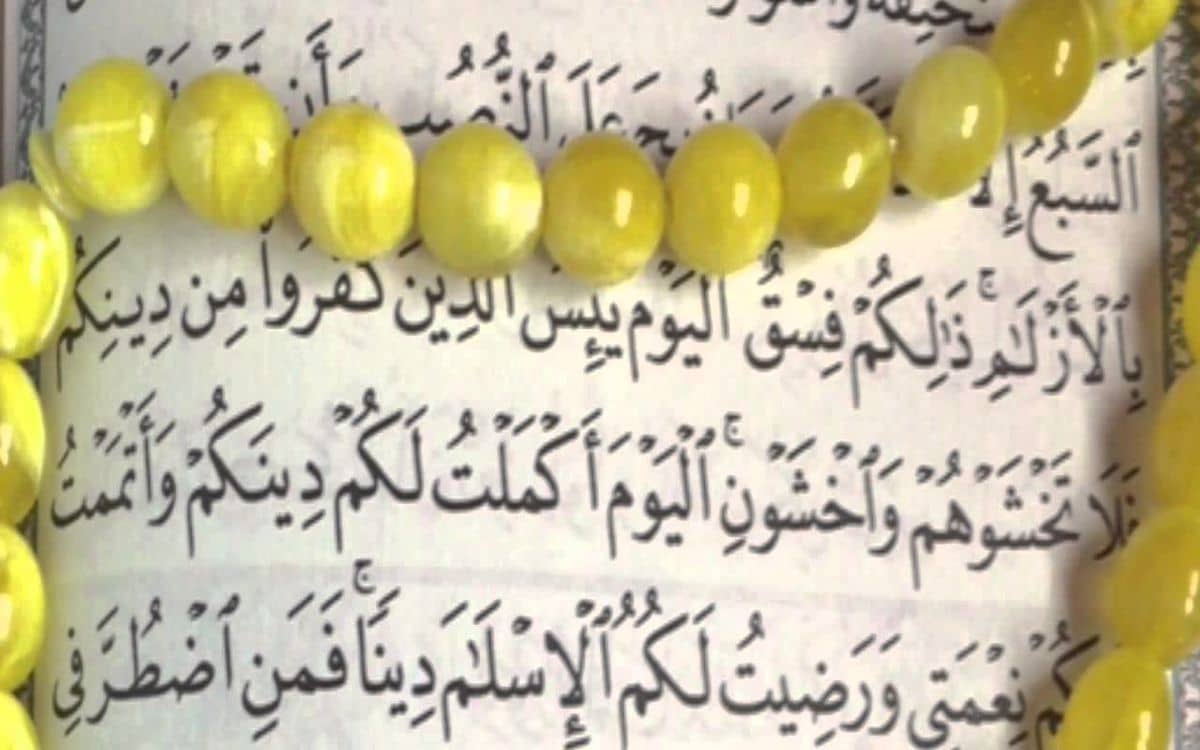 ٱلسَّبُعُ إِلَّا
بِٱلْأَزْلَٰمِ ۚ ذَٰلِكُمْ فِسْقٌ ٱلْيَوْمَ يَئِسَ ٱلَّذِينَ كَفَرُوا۟ مِن دِينِكُمْ
فَلَا تَخْشَوْهُمْ وَٱخْشَوْنِ ۚ ٱلْيَوْمَ أَكْمَلْتُ لَكُمْ دِينَكُمْ وَأَتْمَمْتُ
نِعْمَتِى وَرَضِيتُ لَكُمُ ٱلْإِسْلَٰمَ دِينًا ۚ فَمَنِ ٱضْطُرَّ فِى